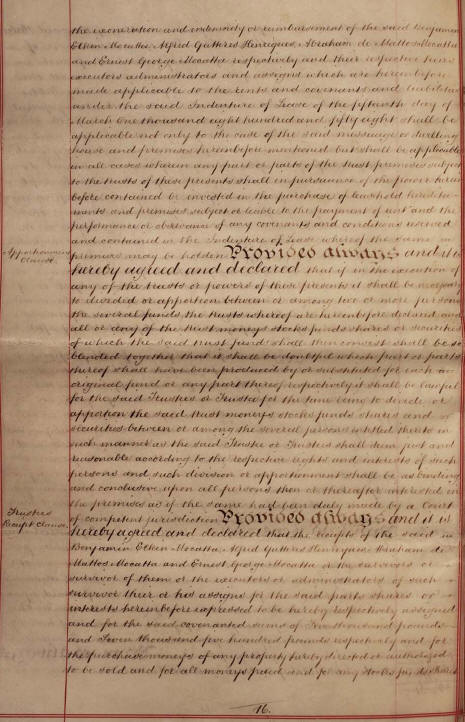 the exoneration and indemnity or reimbursement of the said Benjamin
Elkin Mocatta Alfred Gutteres Henriques, Abraham de Mattos Mocatta
and Ernest George Mocatta respectively and their respective heirs
executors administrators and assigns which are hereinbefore
made applicable to the rents and covenants and liabilities
under the said Indenture of Lease of the fifteenth day of
March One thousand eight hundred and fifty eight shall be
applicable not only to the case of the said messuage or dwelling
house and premises hereinbefore mentioned but shall be applicable
in all cases wherein any part or parts of the trust premises subject
to the trusts of these presents shall in pursuance of the power herein
before contained be invested in the purchase of leasehold heredita-
ments and premises subject or liable to the payment of rent and the
performance or observance of any covenants and conditions reserved
and contained in the Indenture of Lease whereof the same
premises may be holden Provided always and it is
Apportionment Clause.
hereby agreed and declared that if in the execution of
any of the trusts or powers of these presents it shall be necessary
to divided or apportion between or among two or more persons
the several funds the trusts whereof are hereinbefore declared and
all or any of the trust moneys stocks funds shares or securities
of which the said trust fund shall then consist shall be so
blended together that it shall be doubtful which part or parts
thereof shall have been produced by or substituted for each
original fund or any part thereof respectively it shall be lawful
for the said Trustees or Trustee for the time being to divide or
apportion the said trust moneys stocks funds shares and
securities between or among the several persons entitled thereto in
such manner as the said Trustee or Trustees shall deem just and
reasonable according to the respective rights and interests of such
persons and such division or apportionment shall be as binding
and conclusive upon all persons then or thereafter interested in
the premises as if the same had been duly made by a Court
of competent jurisdiction Provided always and it is
Trustees Receipt Clause.
hereby agreed and declared that the receipts of the said
Benjamin Elkin Mocatta, Alfred Gutteres Henriques Abraham de
Mattos Mocatta and Ernest George Mocatta or the survivors or
survivor of them or the executors or administrators of such
survivor their or his assigns for the said parts shares or
interests hereinbefore expressed to be hereby respectively assigned
and for the said covenanted sums of thousand pounds
and Seven thousand five hundred pounds respectively and for
the purchase moneys of any property hereby directed or authorized
to be sold and for all moneys paid and for any stocks funds shares
16.